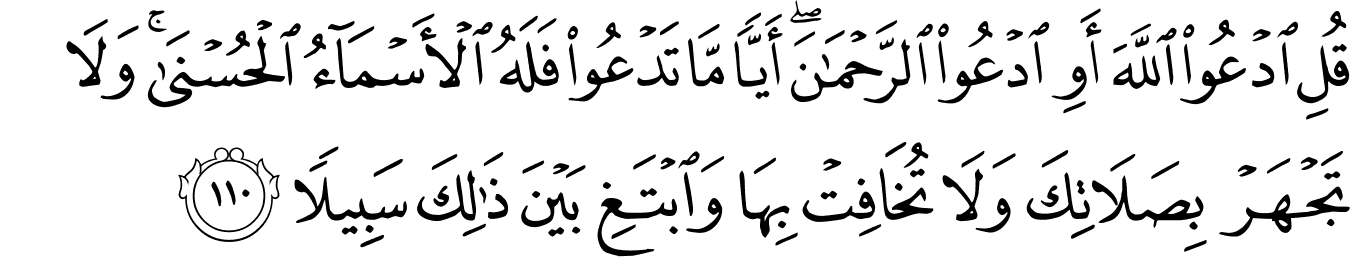 قُلِ ٱدۡعُواْ ٱللَّهَ أَوِ ٱدۡعُواْ ٱلرَّحۡمَٰنَۖ أَيّٗا مَّا تَدۡعُواْ فَلَهُ ٱلۡأَسۡمَآءُ ٱلۡحُسۡنَىٰۚ وَلَا
تَجۡهَرۡ بِصَلَاتِكَ وَلَا تُخَافِتۡ بِهَا وَٱبۡتَغِ بَيۡنَ ذَٰلِكَ سَبِيلٗا ١١٠